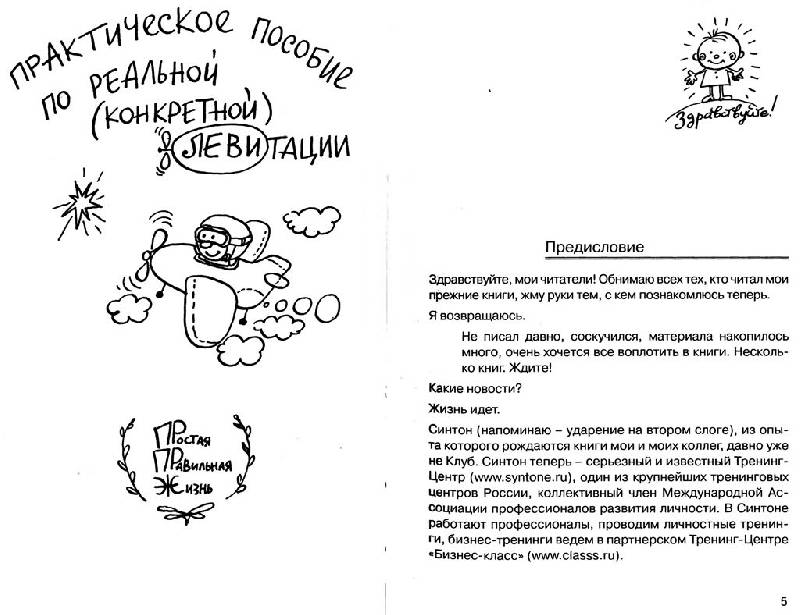 ПРАКТИЧЕСКОЕ ПОСОБИЕ
ПО РЕАЛЬНОЙ
(КОНКРЕТНОЙ)
ЛЕВИТАЦИИ
ПРостая
ПРавильная
Жизнь
Здравствуйте!
Предисловие
Здравствуйте, мои читатели! Обнимаю всех тех, кто читал мои
прежние книги, жму руки тем, с кем познакомлюсь теперь.
Я возвращаюсь.
Не писал давно, соскучился, материала накопилось
много, очень хочется все воплотить в книги. Несколь-
ко книг. Ждите!
Какие новости?
Жизнь идет.
Синтон (напоминаю – ударение на втором слоге), из опы-
та которого рождаются книги мои и моих коллег, давно уже
не Клуб. Синтон теперь – серьезный и известный Тренинг-
Центр (www.syntone.ru), один из крупнейших тренинговых
центров России, коллективный член Международной Ас-
социации профессионалов развития личности. В Синтоне
работают профессионалы, проводим личностные тренин-
ги, бизнес-тренинги ведем в партнерском Тренинг-Центре
«Бизнес-класс» (www.classs.ru).
5